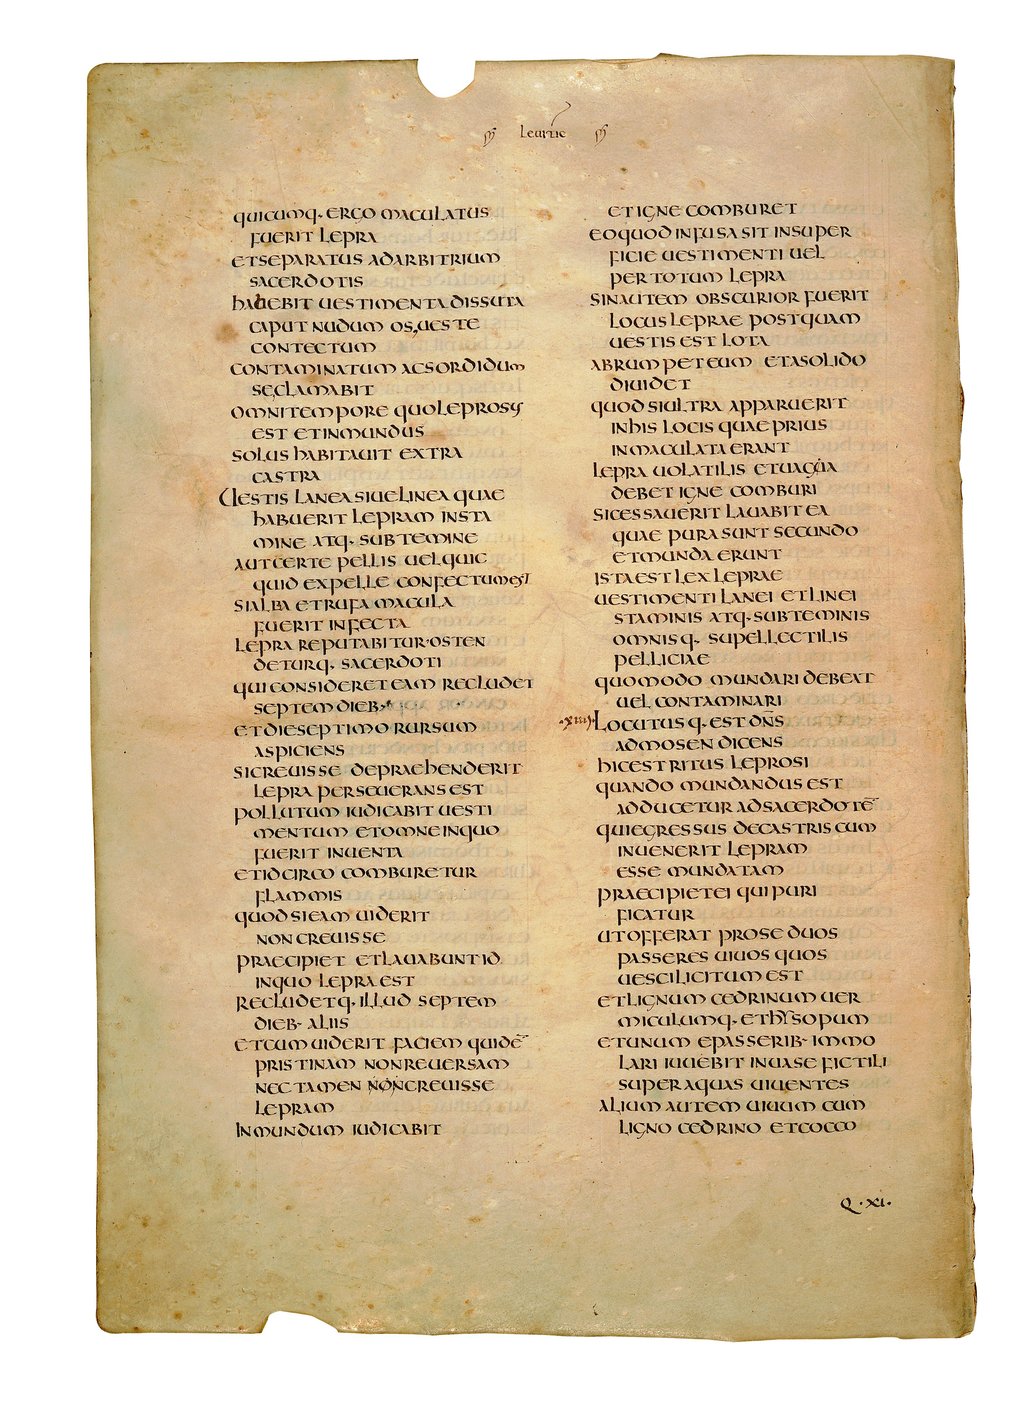 Leuitic
quicumq· ergo maculatus
fuerit lepra
et separatus ad arbitrium
sacerdotis
habebit uestimenta dissuta
caput nudum os, ueste
contectum
contaminatum ac sordidum
se, clamabit
omni tempore quo leprosus
est et inmundus
solus habitauit extra
castra
Uestis lanea siue linea quae
habuerit lepram in sta
mine atq· subtemine
aut certe pellis uel quic
quid ex pelle confectum est
si alba et rufa macula
fuerit infecta
lepra reputabitur · osten
deturq· sacerdoti
qui consideret eam recludet
septem dieb·
et die septimo rursum
aspiciens
si creuisse depraehenderit
lepra perseuerans est
pollutum iudicabit uesti
mentum et omne in quo
fuerit inuenta
et idcirco comburetur
flammis
quod si eam uiderit
non creuisse
praecipiet et lauabunt id
in quo lepra est
recludetq· illud septem
dieb· aliis
et cum uiderit faciem quidē
pristinam non reuersam
nec tamen non creuisse
lepram
inmundum iudicabit
et igne comburet
eo quod infusa sit in super
ficie uestimenti uel
per totum lepra
sin autem obscurior fuerit
locus leprae postquam
uestis est lota
abrumpet eum et a solido
diuidet
quod si ultra apparuerit
in his locis quae prius
inmaculata erant
lepra uolatilis et uaga
debet igne comburi
si cessauerit lauabit ea
quae pura sunt secundo
et munda erunt
ista est lex leprae
uestimenti lanei et linei
staminis atq· subteminis
omnisq· supellectilis
pelliciae
quomodo mundari debeat
uel contaminari
·xiiii· Locutusq· est dn̄s
ad mosen dicens
hic est ritus leprosi
quando mundandus est
adducetur ad sacerdotē
qui egressus de castris cum
inuenerit lepram
esse mundatam
praecipiet ei qui puri
ficatur
ut offerat pro se duos
passeres uiuos quos
uesci licitum est
et lignum cedrinum uer
miculumq· et hysopum
et unum e passerib· immo
lari iuuebit in uase fictili
super aquas uiuentes
alium autem uiuum cum
ligno cedrino et cocco
Q · XI ·